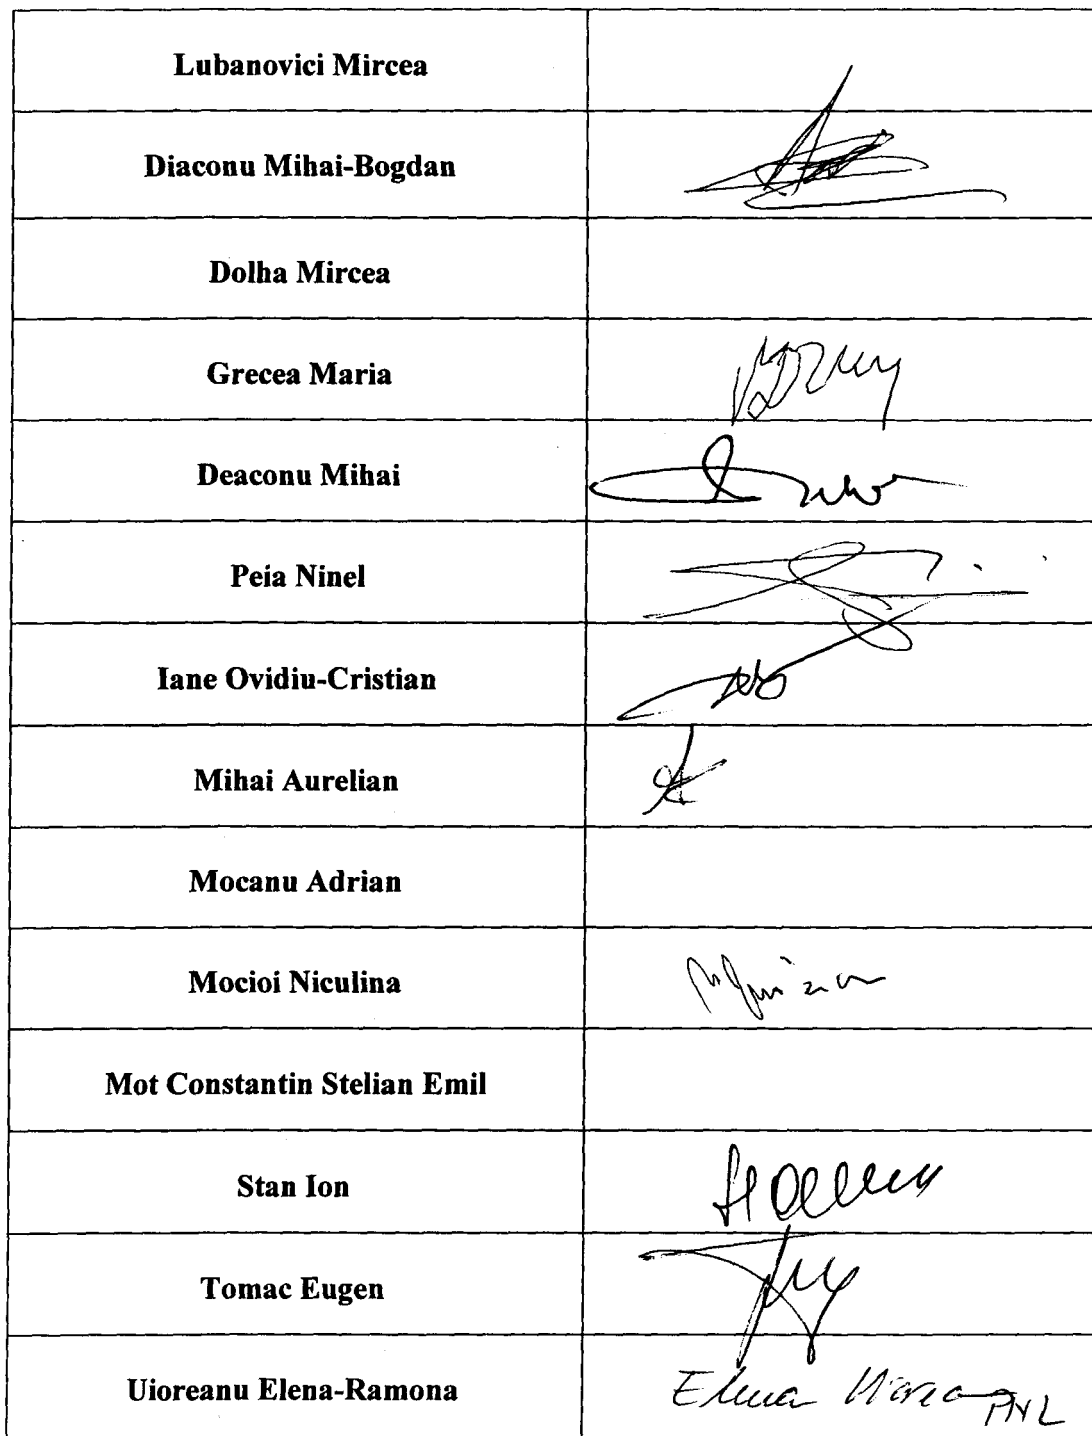 Lubanovici Mircea
Diaconu Mihai-Bogdan
Dolha Mircea
Grecea Maria
Deaconu Mihai
Peia Ninel
Iane Ovidiu-Cristian
Mihai Aurelian
Mocanu Adrian
Mocioi Niculina
Mot Constantin Stelian Emil
Stan Ion
Tomac Eugen
Uioreanu Elena-Ramona
Elena PNL